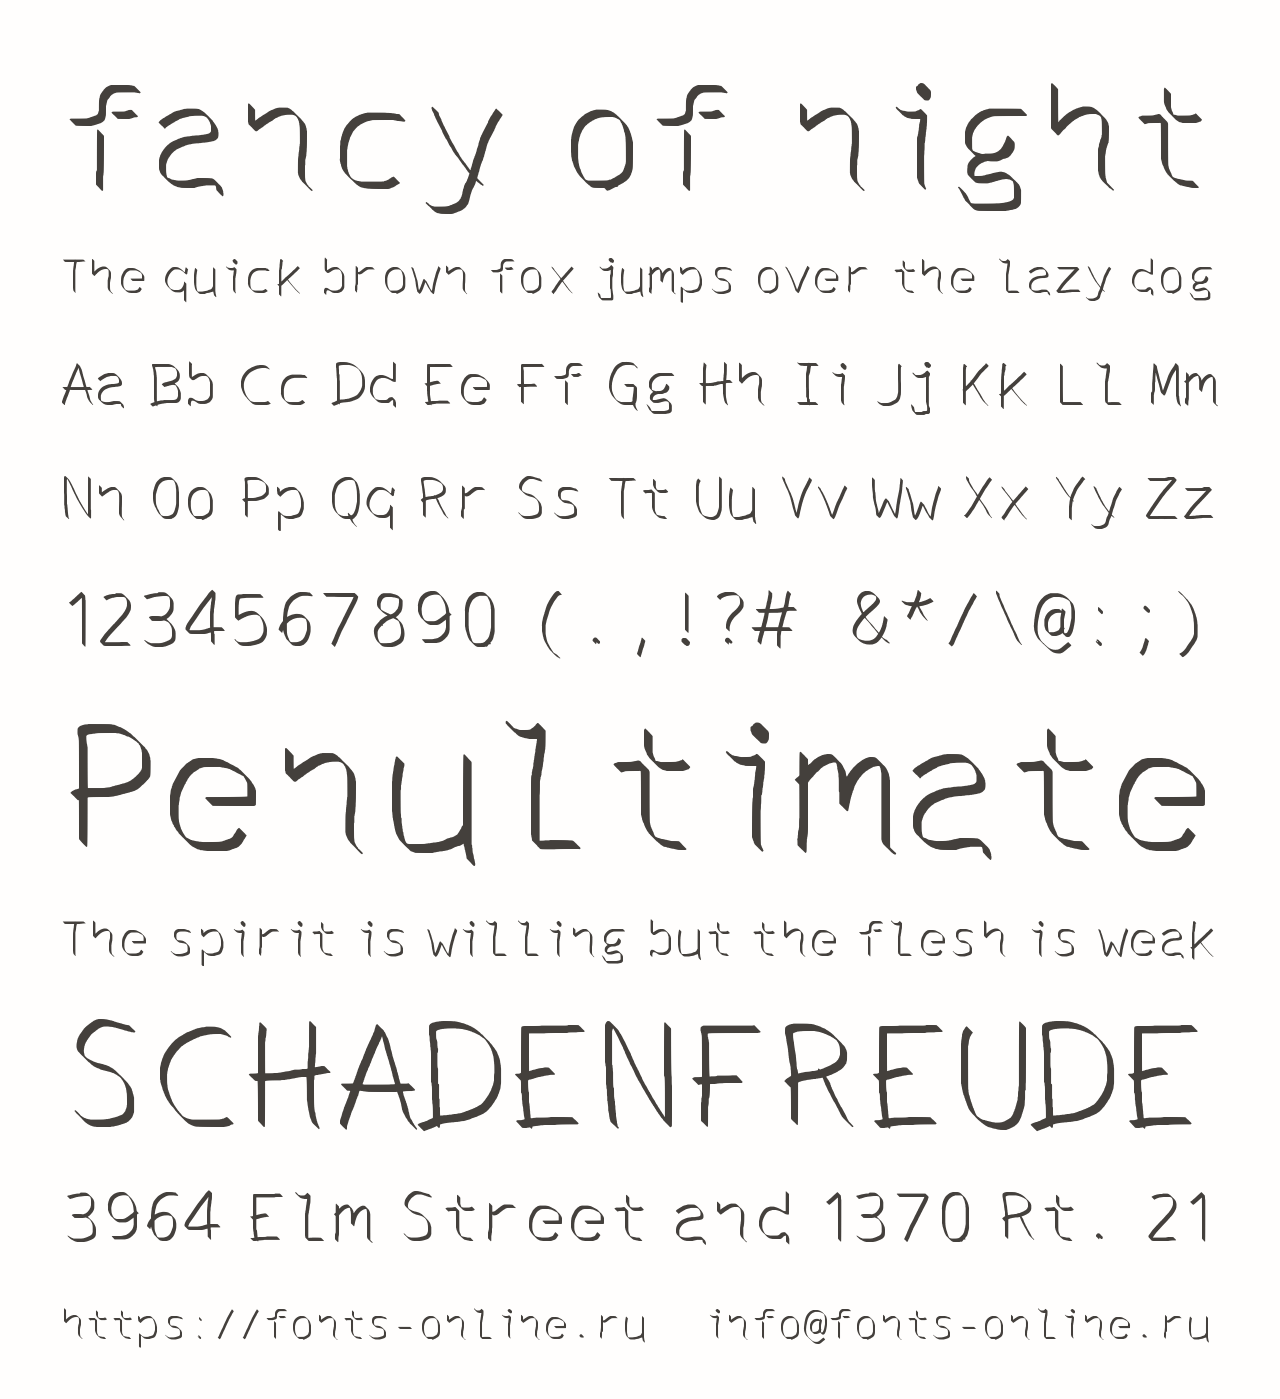 fancy of night
The quick brown fox jumps over the lazy dog
Aa Bb Cc Dd Ee Ff Gg Hh Ii Jj Kk Ll Mm
Nn Oo Pp Qq Rr Ss Tt Uu Vv Ww Xx Yy Zz
1234567890 (.,!?# &*/\@:;)
Penultimate
The spirit is willing but the flesh is weak
SCHADENFREUDE
3964 Elm Street and 1370 Rt. 21
https://fonts-online.ru info@fonts-online.ru